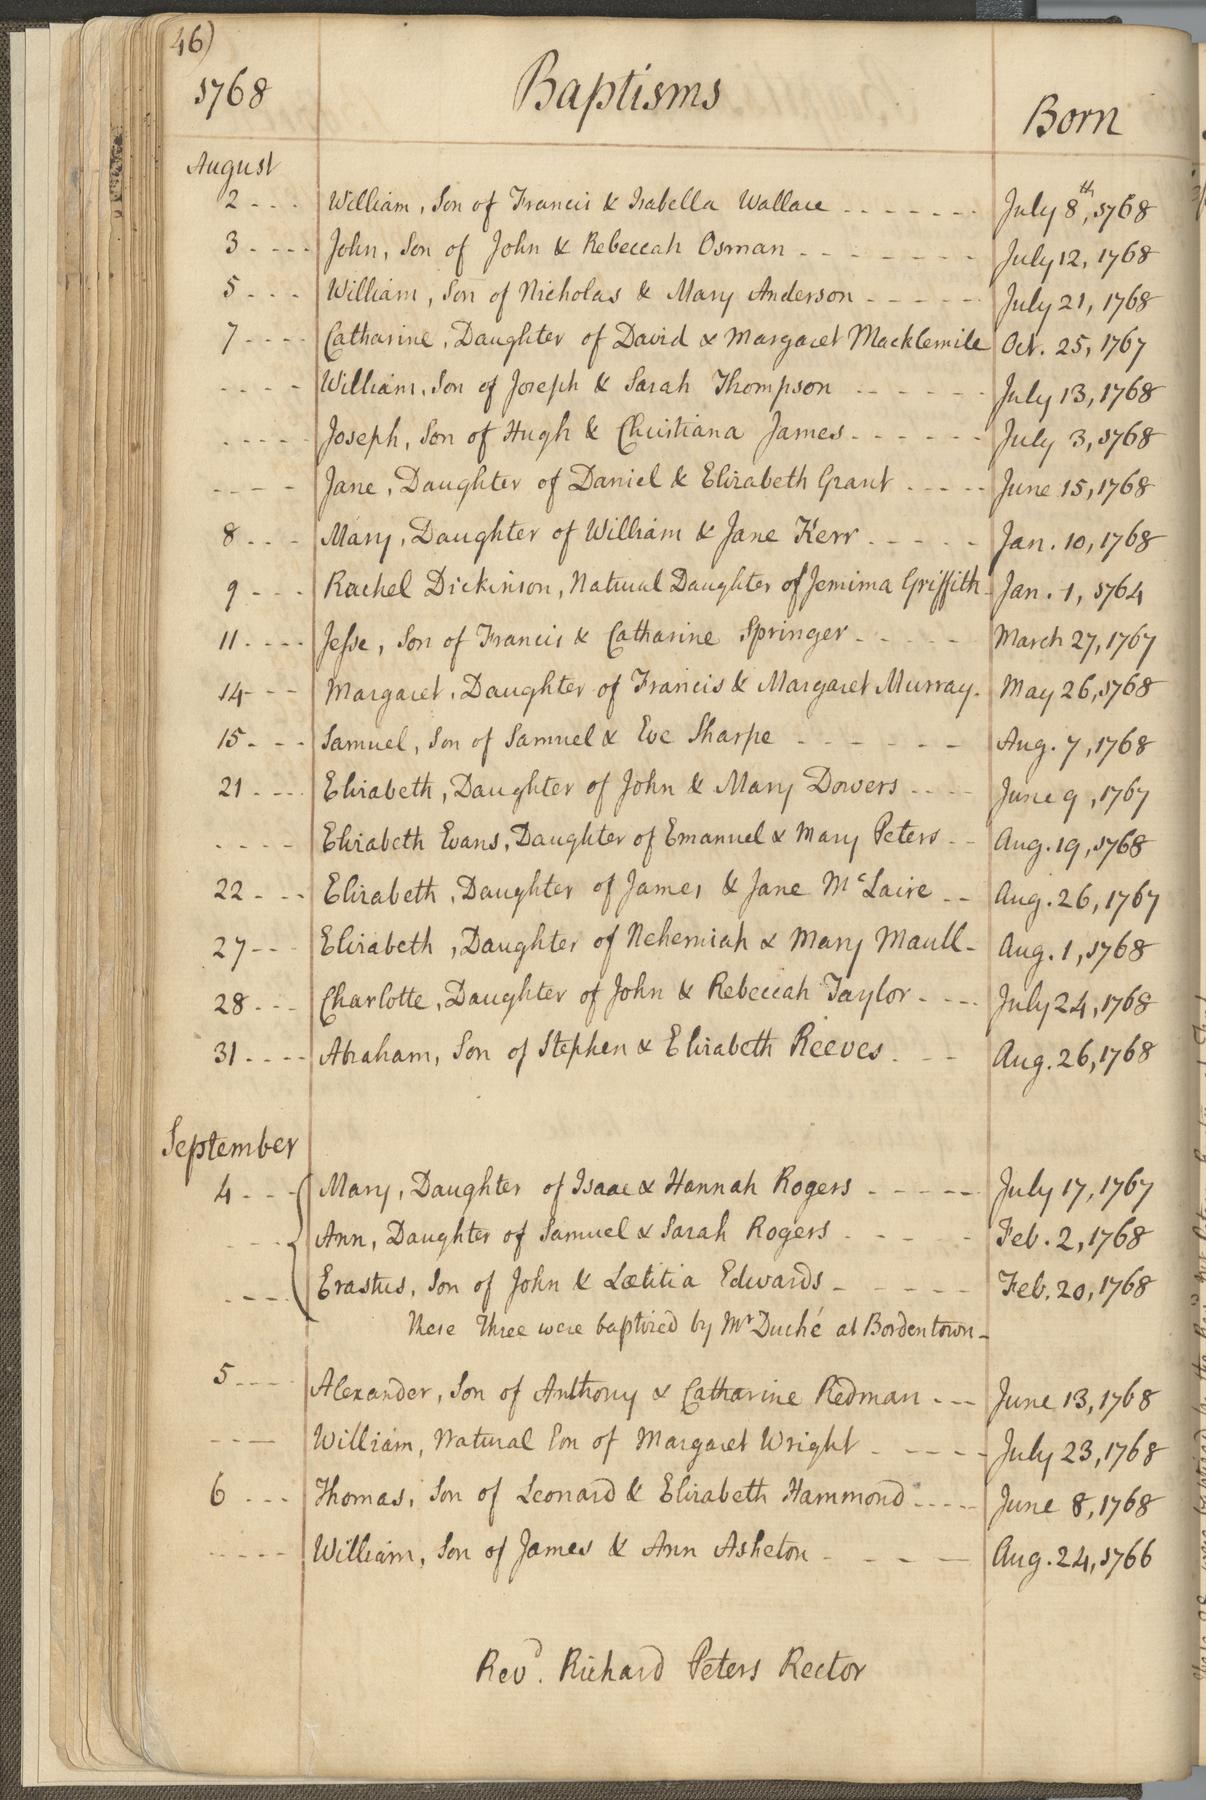 46)
1768 Baptisms Born
August
2 - - - William, Son of Francis & Isabella Wallace - - - - - - - July 8th, 1768
3 - - - - John, Son of John & Rebeccah Osman - - - - - - - July 12, 1768
5 - - - William, Son of Nicholas & Mary Anderson - - - - - July 21, 1768
7 - - - - Catharine, Daughter of David & Margaret Macklemile Oct. 25, 1767
- - - - William, Son of Joseph & Sarah Thompson - - - - - - July 13, 1768
- - - - - Joseph, Son of Hugh & Christiana James - - - - - - July 3, 1768
- - - - Jane, Daughter of Daniel & Elizabeth Grant - - - - June 15, 1768
8 - - - Mary, Daughter of William & Jane Kerr - - - - - Jan. 10, 1768
9 - - - Rachel Dickinson, Natural Daughter of Jemima Griffith - Jan. 1, 1764
11 - - - - Jesse, Son of Francis & Catharine Springer - - - - - March 27, 1767
14 - - - Margaret, Daughter of Francis & Margaret Murray. May 26, 1768
15 - - - Samuel, Son of Samuel & Eve Sharpe - - - - - - Aug. 7, 1768
21 - - - Elizabeth, Daughter of John & Mary Dowers - - - - June 9, 1767
- - - - Elizabeth Evans, Daughter of Emanuel & Mary Peters - - Aug. 19, 1768
22 - - - Elizabeth, Daughter of James & Jane McLaire - - Aug. 26, 1767
27 - - - Elizabeth, Daughter of Nehemiah & Mary Maull - Aug. 1, 1768
28 - - - Charlotte, Daughter of John & Rebeccah Taylor - - - - July 24, 1768
31 - - - - Abraham, Son of Stephen & Elizabeth Reeves - - - Aug. 26, 1768
September
4 - - - Mary, Daughter of Isaac & Hannah Rogers - - - - - July 17, 1767
- - - Ann, Daughter of Samuel & Sarah Rogers - - - - - Feb. 2, 1768
- - - Erastus, Son of John & Lætitia Edwards - - - - - Feb. 20, 1768
These Three were baptized by Mr Duché at Bordentown -
5 - - - Alexander, Son of Anthony & Catharine Redman - - - June 13, 1768
- - - William, Natural Son of Margaret Wright - - - - - July 23, 1768
6 - - - Thomas, Son of Leonard & Elizabeth Hammond - - - - June 8, 1768
- - - - - William, Son of James & Ann Asheton - - - - - Aug. 24, 1766
Revd. Richard Peters Rector